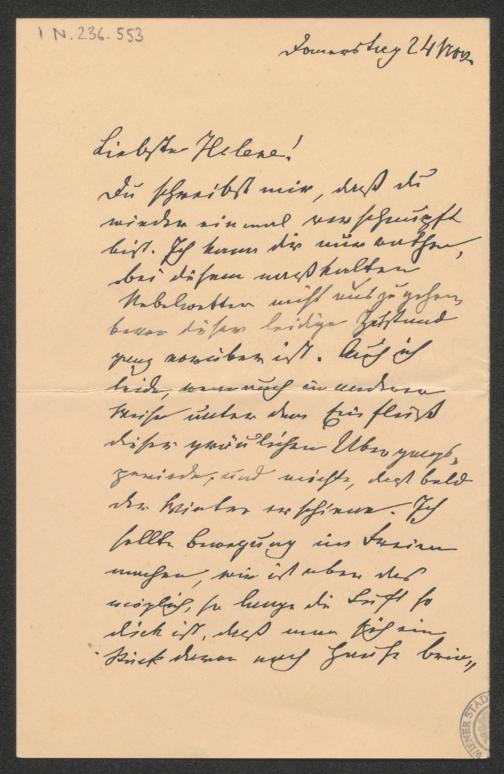 I N. 236.553
Donnerstag 24 Nov.
Liebste Helene!
Du schreibst mir, daß du
wieder einmal verschnupft
bist. Ich kann dir nur rathen,
bei diesem naßkalten
Nebelwetter nicht auszugehen,
bevor dieser leidige Zustand
ganz vorüber ist. Auch ich
leide, wenn auch in anderer
Weise unter dem Einfluß
dieser gräulichen Übergangs-
periode, und möchte, daß bald
der Winter erschiene. Ich
sollte Bewegung im Freien
machen, wie ist aber das
möglich, so lange die Luft so
dick ist, daß man sich ein
Stück davon nach Hause brin„
WIENER STADT